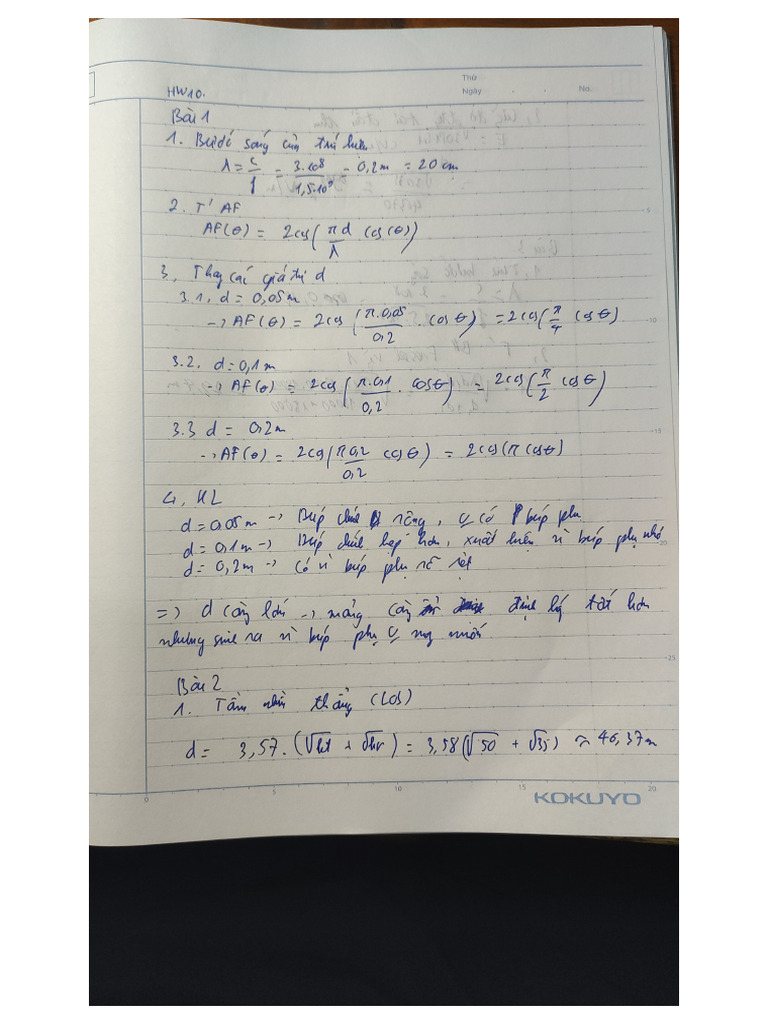 Thứ
Ngày . . No.
HW10.
Bài 1
1. Bước sóng của tín hiệu
λ = c/f = 3.10⁸/1,5.10⁹ = 0,2m = 20 cm
2. T' AF
AF(θ) = 2cos(πd/λ cos(θ))
3, Thay các giá trị d
3.1. d = 0,05m
→ AF(θ) = 2cos(π.0,05/0,2 . cosθ) = 2cos(π/4 cosθ)
3.2. d = 0,1m
→ AF(θ) = 2cos(π.0,1/0,2 . cosθ) = 2cos(π/2 cosθ)
3.3 d = 0,2m
→ AF(θ) = 2cos(π0,2/0,2 cosθ) = 2cos(π cosθ)
4, KL
d = 0,05m → Búp chính rộng, có búp phụ
d = 0,1m → Búp chính hẹp hơn, xuất hiện búp phụ nhỏ
d = 0,2m → có búp phụ rõ rệt
=> d càng lớn → mảng càng định tốt hơn
nhưng sinh ra búp phụ muốn
Bài 2
1. Tầm nhìn thẳng (LOS)
d = 3,57.(√ht + √hr) = 3,58(√50 + √35) ≈ 46,37m
5
10
15
20
25
0 5 10 15 20
KOKUYO